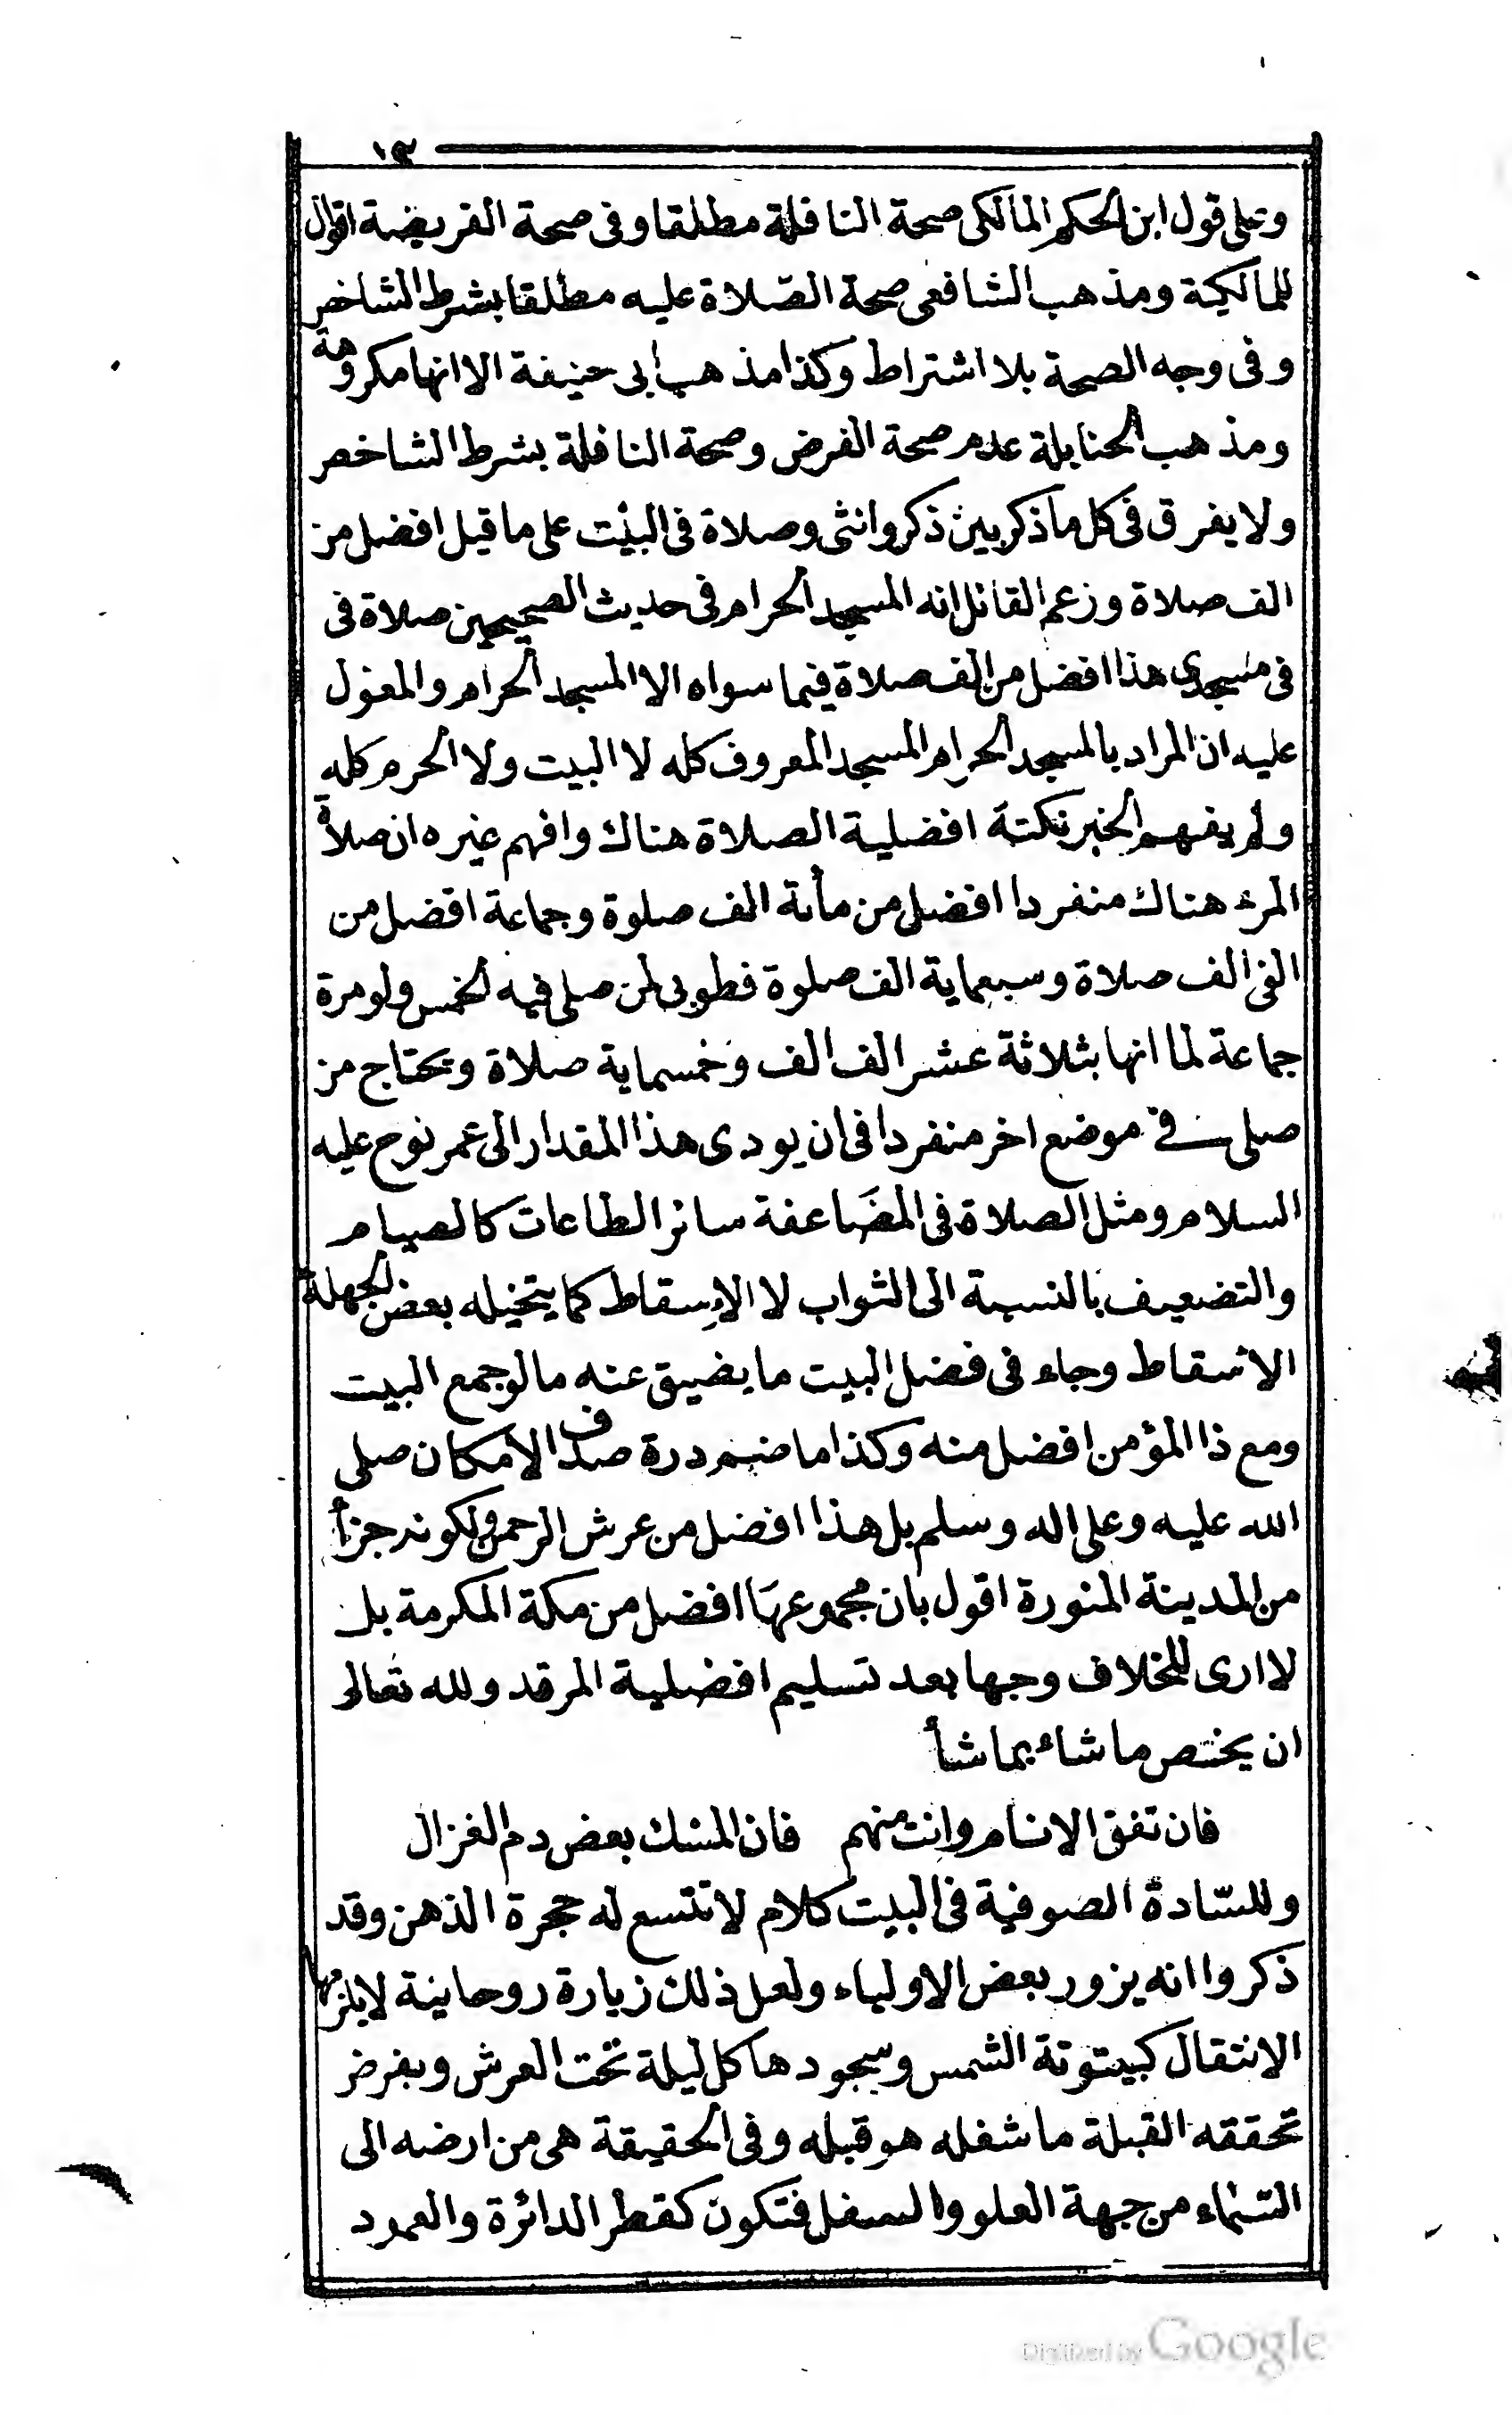 ١٣
وعلى قول ابن الحكم المالكى صحة النافلة مطلقا وفى صحة الفريضة اقوال
للمالكية ومذهب الشافعى صحة الصّلاة عليه مطلقا بشرط الشاخص
وفى وجه الصحة بلا اشتراط وكذا مذهب ابى حنيفة الا انها مكروهة
ومذهب الحنابلة عدم صحة الفرض وصحة النافلة بشرط الشاخص
ولا يفرق فى كل ما ذكر بين ذكر وانثى وصلاة فى البيت على ما قيل افضل من
الف صلاة وزعم القائل انه المسجد الحرام فى حديث الصحيحين صلاة فى
فى مسجدى هذا افضل من الف صلاة فيما سواه الا المسجد الحرام والمعول
عليه ان المراد بالمسجد الحرام المسجد المعروف كله لا البيت ولا الحرم كله
ولم يفهم الخبر نكتة افضلية الصلاة هناك وافهم غيره ان صلاة
المرء هناك منفردا افضل من مأية الف صلوة وجماعة افضل من
الفى الف صلاة وسبعماية الف صلوة فطوبى لمن صلى فيه الخمس ولو مرة
جماعة لما انها بثلاثة عشر الف الف وخمسماية صلاة ويحتاج من
صلى فى موضع اخر منفردا فى ان يودى هذا المقدار الى عمر نوح عليه
السلام ومثل الصلاة فى المضَاعفة سائر الطاعات كالصيام
والتضعيف بالنسبة الى الثواب لا الاسقاط كما يتخيله بعض الجهلة
الاسقاط وجاء فى فضل البيت ما يضيق عنه ما لو جمع البيت
ومع ذا المؤمن افضل منه وكذا ما ضم درة صدف الامكان صلى
الله عليه وعلى اله وسلم بل هذا افضل من عرش الرحمن ولكونه جزأ
من المدينة المنورة اقول بان مجموعهَا افضل من مكة المكرمة بل
لا ارى للخلاف وجها بعد تسليم افضلية المرقد ولله تعالى
ان يختص ما شاء بما شأ
فان تفق الانام وانت منهم فان المسك بعض دم الغزال
وللسّادة الصوفية فى البيت كلام لا تتسع له حجرة الذهن وقد
ذكروا انه يزور بعض الاولياء ولعل ذلك زيارة روحانية لا يلزمها
الانتقال كبيتوتة الشمس وسجودها كل ليلة تحت العرش وبفرض
تحققه القبلة ما شغله هو قبله وفى الحقيقة هى من ارضه الى
السّماء من جهة العلو والسفل فتكون كقطر الدائرة والعمود
Digitized by Google